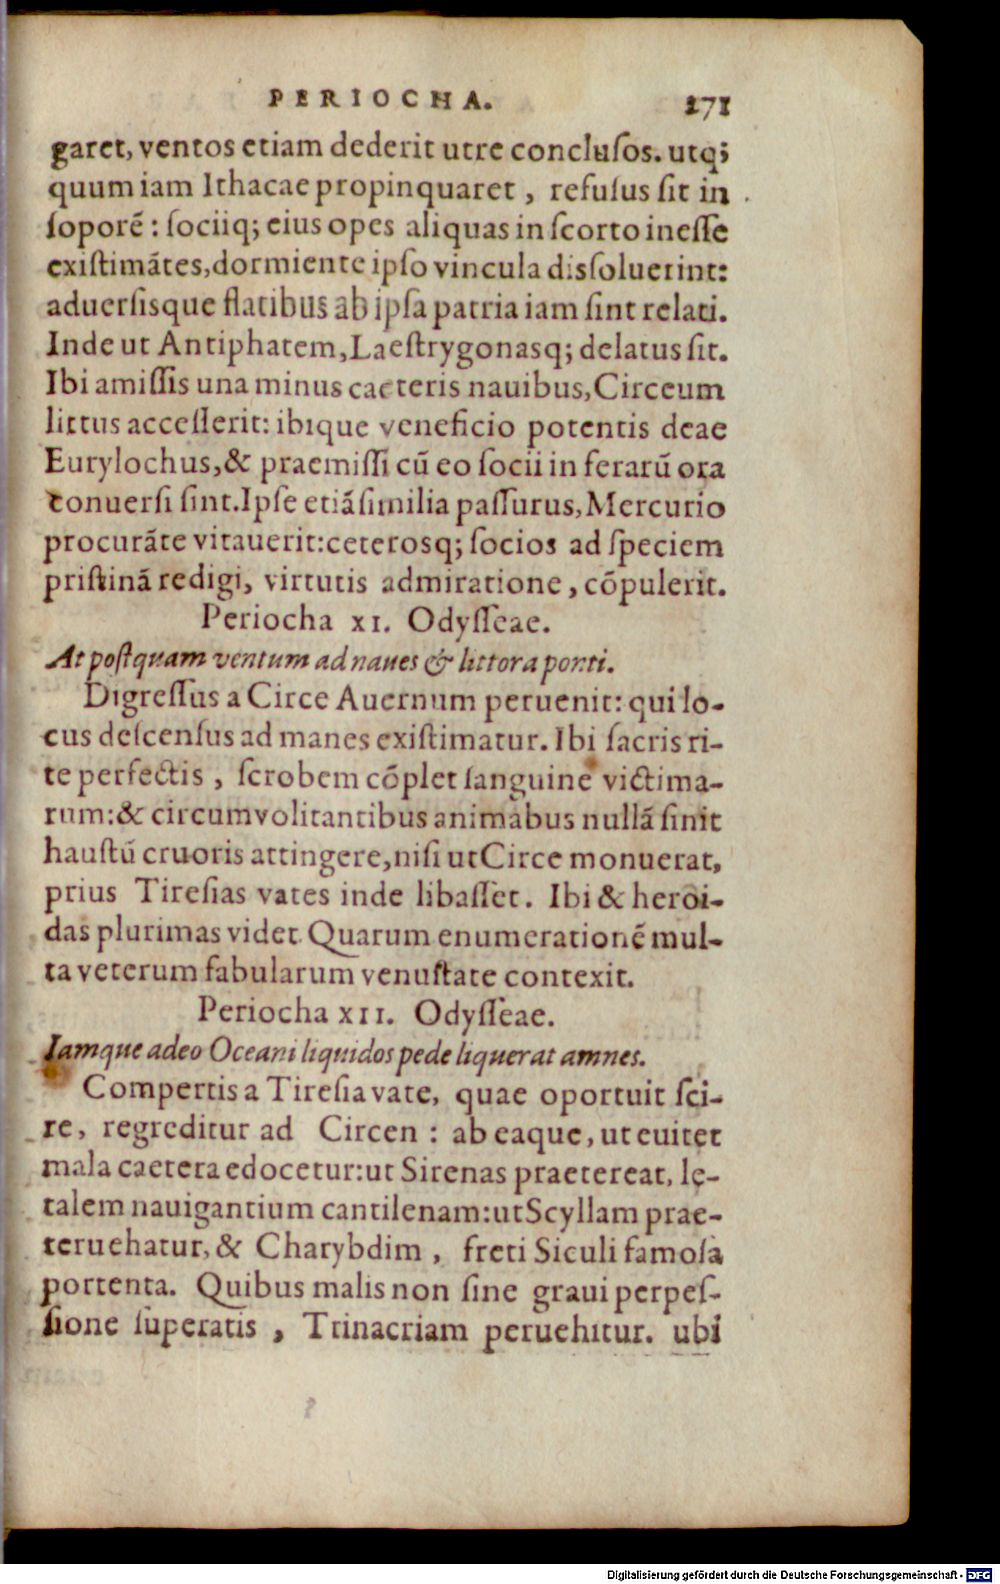 PERIOCHA. 271
garet, ventos etiam dederit utre concluſos. utq;
quum iam Ithacae propinquaret, refuſus ſit in
ſoporẽ: ſociiq; eius opes aliquas in ſcorto ineſſe
exiſtimãtes, dormiente ipſo vincula diſſoluerint:
aduerſisque flatibus ab ipſa patria iam ſint relati.
Inde ut Antiphatem, Laeſtrygonasq; delatus ſit.
Ibi amiſſis una minus caeteris nauibus, Circeum
littus acceſſerit: ibique veneficio potentis deae
Eurylochus, & praemiſſi cũ eo ſocii in ferarũ ora
conuerſi ſint. Ipſe etiã ſimilia paſſurus, Mercurio
procurãte vitauerit: ceterosq; ſocios ad ſpeciem
priſtinã redigi, virtutis admiratione, cõpulerit.
Periocha XI. Odyſſeae.
At poſtquam ventum ad naues & littora ponti.
Digreſſus a Circe Auernum peruenit: qui lo-
cus deſcenſus ad manes exiſtimatur. Ibi ſacris ri-
te perfectis, ſcrobem cõplet ſanguine victima-
rum: & circumvolitantibus animabus nullã ſinit
hauſtũ cruoris attingere, niſi ut Circe monuerat,
prius Tireſias vates inde libaſſet. Ibi & heroi-
das plurimas videt. Quarum enumerationẽ mul-
ta veterum fabularum venuſtate contexit.
Periocha XII. Odyſſeae.
Iamque adeo Oceani liquidos pede liquerat amnes.
Compertis a Tireſia vate, quae oportuit ſci-
re, regreditur ad Circen: ab eaque, ut euitet
mala caetera edocetur: ut Sirenas praetereat, lę-
talem nauigantium cantilenam: ut Scyllam prae-
teruehatur, & Charybdim, freti Siculi famoſa
portenta. Quibus malis non ſine graui perpeſ-
ſione ſuperatis, Trinacriam peruehitur. ubi
Digitalisierung gefördert durch die Deutsche Forschungsgemeinschaft - DFG